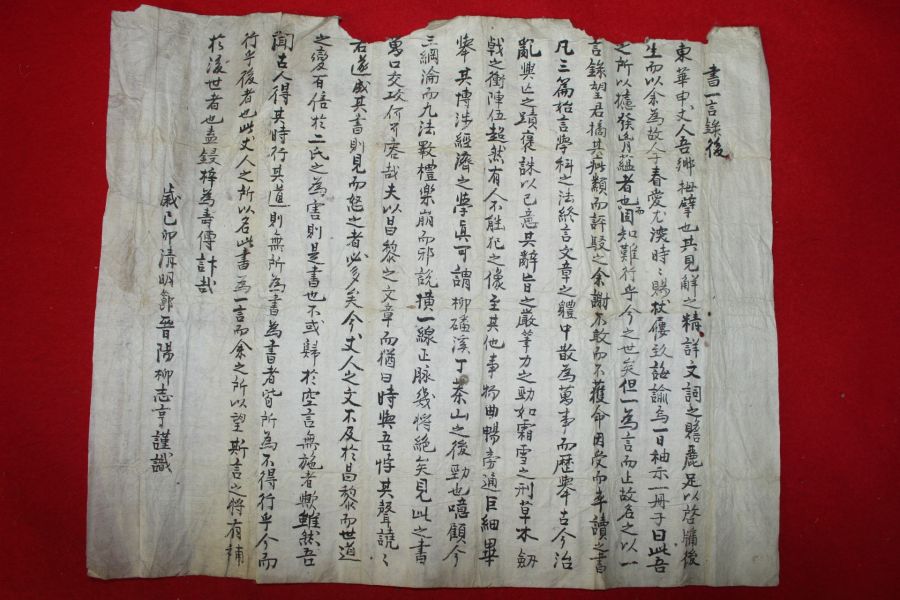 書一言錄後
東華申丈人吾鄉拇擘也其見解之精詳文詞之贍麗足以啓牖後
生而以余為故人子眷愛尤深時〻賜杖屨致誨諭焉一日袖示一冊子曰此吾
之所以攄發胷蘊者也固知難行乎今之世矣但一為言而止故名之以一
言錄望君摘其疵纇而評駁之余謝不敢而不獲命因受而卒讀之書
凡三篇始言學科之法終言文章之軆中散為萬事而歷擧古今治
亂興亡之蹟褒誅以已意其辭旨之嚴筆力之勁如霜雪之刑草木劒
戟之衝陣伍超然有人不能犯之像至其他事物曲暢旁通巨細畢
擧其博涉經濟之學眞可謂柳磻溪丁茶山之後勁也噫顧今
三綱淪而九法斁禮樂崩而邪說橫一線正脉幾將絶矣見此之書
萬口交攻何可容哉夫以昌黎之文章而猶曰時與吾悖其聲譊〻
若遂成其書則見而怒之者必多矣今丈人之文不及於昌黎而世道
之變百倍於二氏之為害則是書也不或歸於空言無施者歟雖然吾
聞古人得其時行其道則無所為書為書者皆所為不得行乎今而
行乎後者也此丈人之所以名此書為一言而余之所以望斯言之將有補
於後世者也盍鋟梓為壽傳計哉
歲己卯清明節晉陽柳志亨謹識